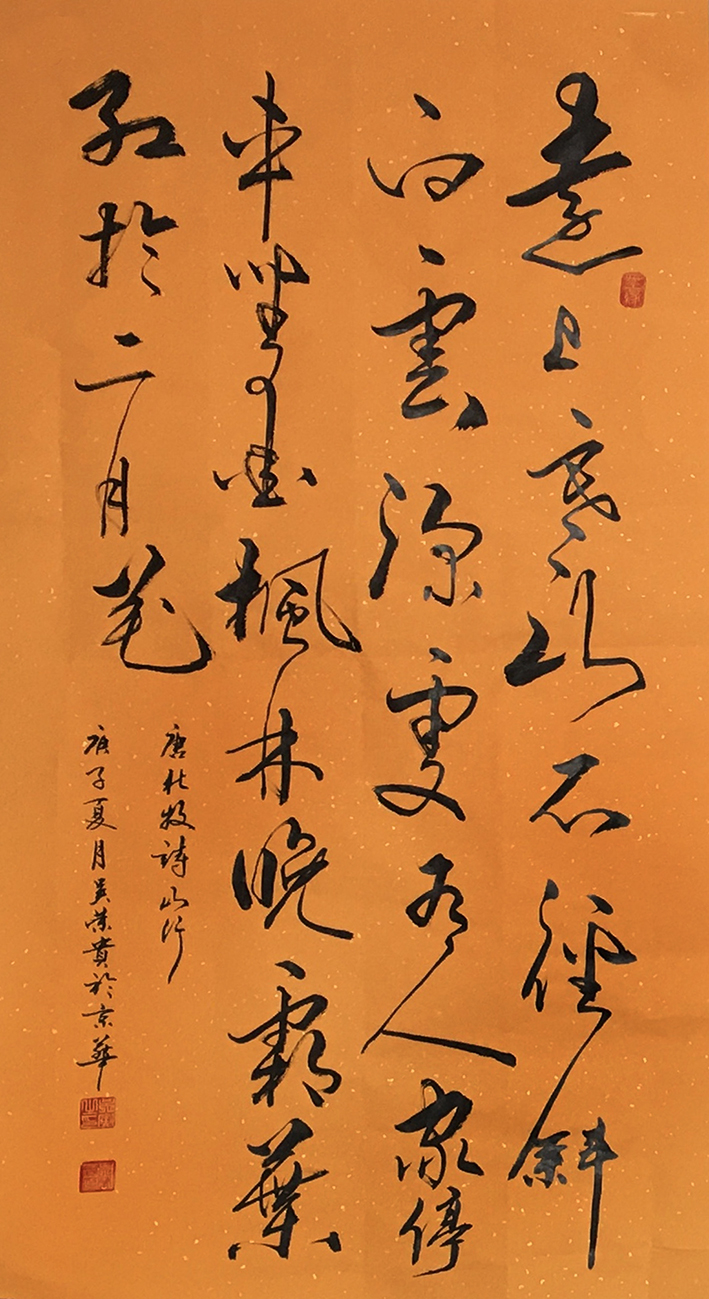 遠上寒山石徑斜
白雲深處有人家停
車坐愛楓林晚霜葉
紅於二月花
唐杜牧詩山行
庚子夏月吳榮貴於京華